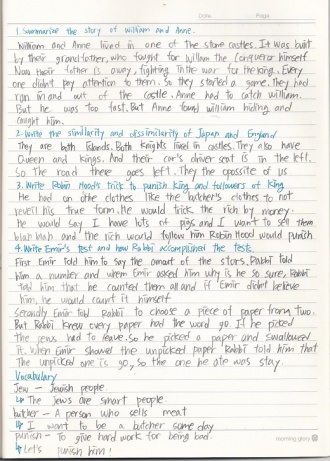 Date Page
1. Summarize the story of William and Anne.
William and Anne lived in one of the stone castles. It was built
by their grandfather, who fought for William the Conqueror himself.
Now their father is away, fighting in the war for the king. Every
one didn't pay attention to them. So they started a game. They had
ran in and out of the castle. Anne had to catch william.
But he was too fast. But Anne found william hiding and
caught him.
2. Write the similarity and dissimilarity of Japan and England
They are both islands. Both knights lived in castles. They also have
Queen and kings. And their car's driver seat is in the left.
So the road there goes left. They are opposite of us
3. Write Robin Hood's trick to punish king and followers of King
He had on other clothes like the butcher's clothes to not
reveil his true form. He would trick the rich by money.
he would say I have lots of pigs and I want to sell them
blah blah and the rich would follow him Robin Hood would punish
4. Write Emir's test and how Rabbi accomplished the tests.
First Emir told him to say the amount of the stars. Rabbi told
him a number and when Emir asked him why is he so sure, Rabbi
told him that he counted them all and if Emir didn't believe
him, he would count it himself.
Secondly Emir told Rabbi to choose a piece of paper from two.
But Rabbi knew every paper had the word go. If he picked
the jews had to leave. So he picked a paper and swallowed
it. When Emir showed the unpicked paper Rabbi told him that
The unpicked one is go, so the one he ate was stay.
Vocabulary
Jew – Jewish people
↳ The jews are smart people.
butcher – A person who sells meat
↳ I want to be a butcher some day
punish – To give hard work for being bad.
↳ Let's punish him!
morning glory